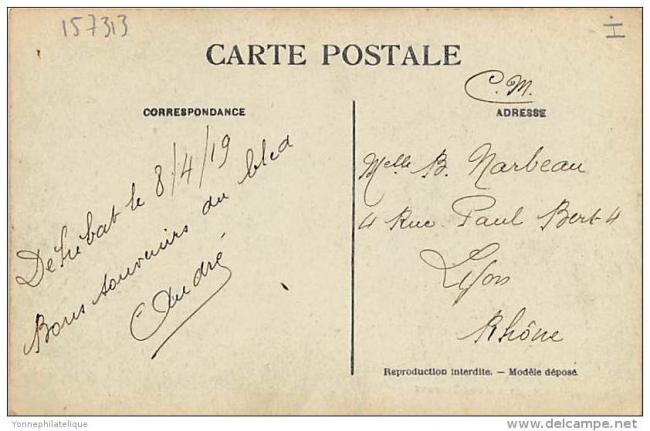 157313
CARTE POSTALE
C.M.
CORRESPONDANCE
ADRESSE
Débibat le 8/4/19
Bons souvenirs du bled
André
Melle B. Narbeau
4 Rue Paul Bert 4
Lyon
Rhône
Reproduction interdite. — Modèle déposé.
Yonnephilatelique
© delcampe.net